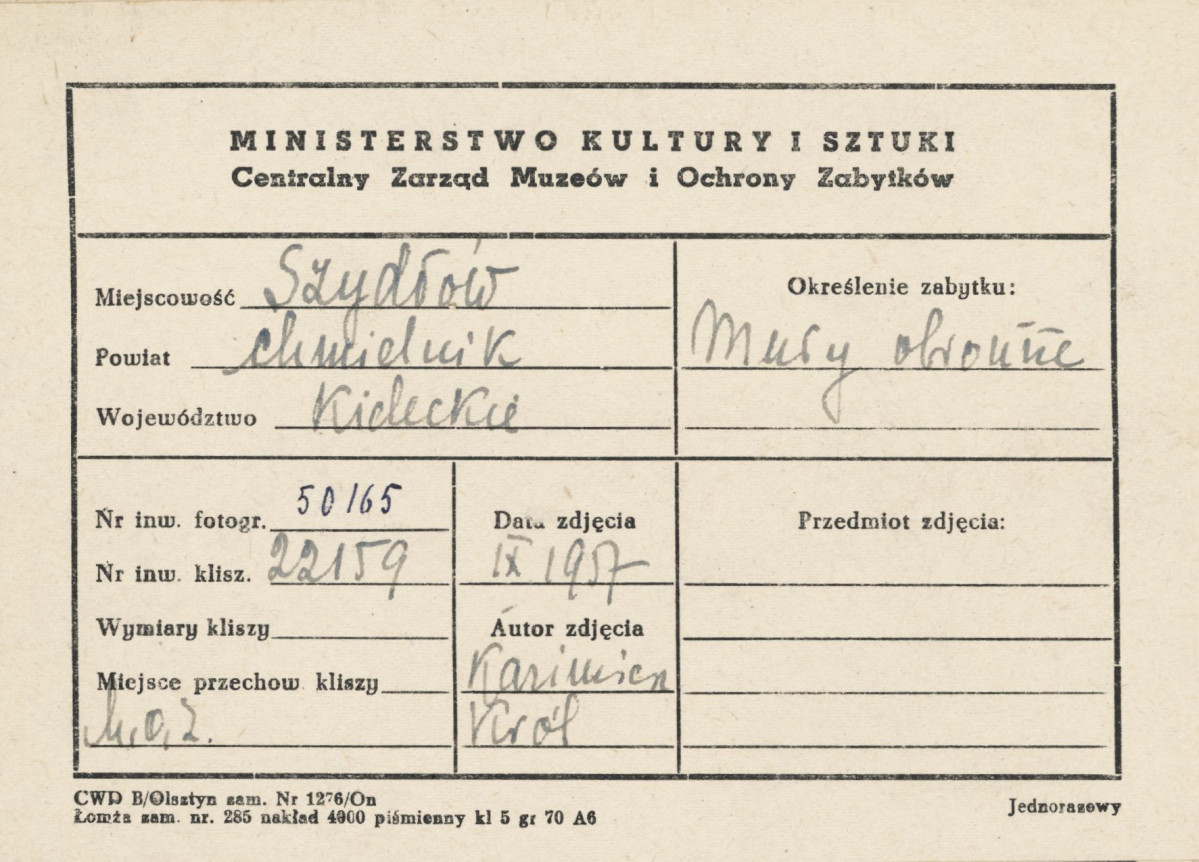 MINISTERSTWO KULTURY I SZTUKI
Centralny Zarząd Muzeów i Ochrony Zabytków
Miejscowość Szydłów
Powiat chmielnik
Województwo Kieleckie
Określenie zabytku:
Mury obronne
Nr inw. fotogr. 50165
Nr inw. klisz. 22159
Wymiary kliszy
Miejsce przechow. kliszy
Data zdjęcia
IX 1957
Autor zdjęcia
Kazimierz
Król
Przedmiot zdjęcia:
CWD B/Olsztyn zam. Nr 1276/On
Łomża zam. nr. 285 nakład 4000 piśmienny kl 5 gr 70 A6
Jednorazowy